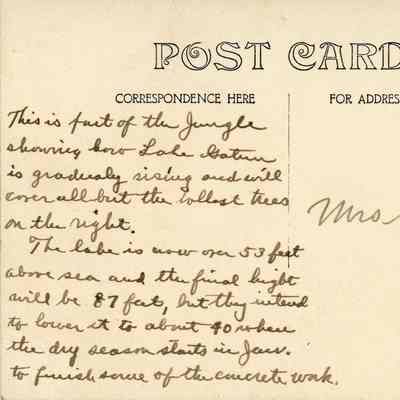 POST CARD
CORRESPONDENCE HERE
FOR ADDRES
This is part of the Jungle
showing how Lake Gatun
is gradualy rising and will
cover all but the tallest trees
on the right.
The lake is now over 53 feet
above sea and the final hight
will be 87 feet, but they intend
to lower it to about 40 when
the dry season starts in Jan.
to finish some of the concrete work.
Mrs